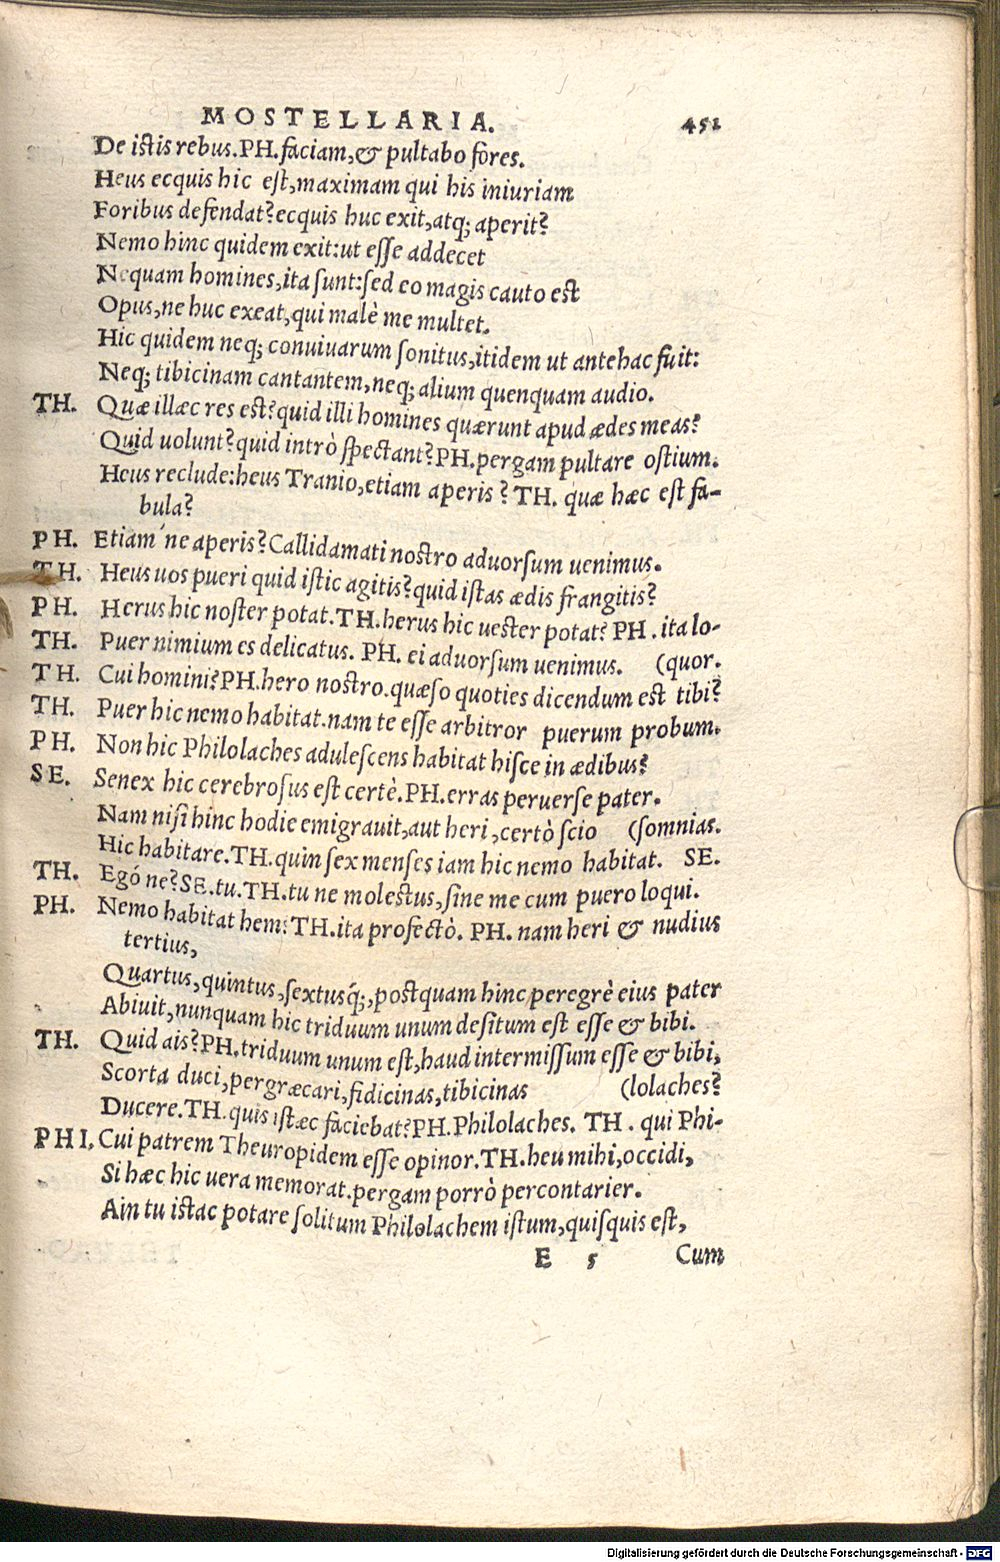 MOSTELLARIA. 451
De istis rebus.PH.faciam,& pultabo fores.
Heus ecquis hic est,maximam qui his iniuriam
Foribus defendat?ecquis huc exit,atq; aperit?
Nemo hinc quidem exit:ut esse addecet
Nequam homines,ita sunt:sed eo magis cauto est
Opus,ne huc exeat,qui malè me multet.
Hic quidem neq; conuiuarum sonitus,itidem ut antehac fuit:
Neq; tibicinam cantantem,neq; alium quenquam audio.
TH. Quæ illæc res est?quid illi homines quærunt apud ædes meas?
Quid uolunt?quid intrò spectant?PH.pergam pultare ostium.
Heus reclude:heus Tranio,etiam aperis? TH. quæ hæc est fa-
bula?
PH. Etiam'ne aperis?Callidamati nostro aduorsum uenimus.
TH. Heus uos pueri quid istic agitis?quid istas ædis frangitis?
PH. Herus hic noster potat.TH.herus hic uester potat? PH. ita lo-
TH. Puer nimium es delicatus. PH. ei aduorsum uenimus. (quor.
TH. Cui homini?PH.hero nostro.quæso quoties dicendum est tibi?
TH. Puer hic nemo habitat.nam te esse arbitror puerum probum.
PH. Non hic Philolaches adulescens habitat hisce in ædibus?
SE. Senex hic cerebrosus est certè.PH.erras peruerse pater.
Nam nisi hinc hodie emigrauit,aut heri,certò scio (somnias.
Hic habitare.TH.quin sex menses iam hic nemo habitat. SE.
TH. Egó ne?SE.tu.TH.tu ne molestus,sine me cum puero loqui.
PH. Nemo habitat hem?TH.ita profectò. PH. nam heri & nudius
tertius,
Quartus,quintus,sextusq́;,postquam hinc peregrè eius pater
Abiuit,nunquam hic triduum unum desitum est esse & bibi.
TH. Quid ais?PH.triduum unum est,haud intermissum esse & bibi,
Scorta duci,pergræcari,fidicinas,tibicinas (lolaches?
Ducere.TH.quis istæc faciebat?PH.Philolaches. TH. qui Phi-
PHI. Cui patrem Theuropidem esse opinor.TH.heu mihi,occidi,
Si hæc hic uera memorat.pergam porrò percontarier.
Ain tu istac potare solitum Philolachem istum,quisquis est,
E 5 Cum
Digitalisierung gefördert durch die Deutsche Forschungsgemeinschaft - DFG